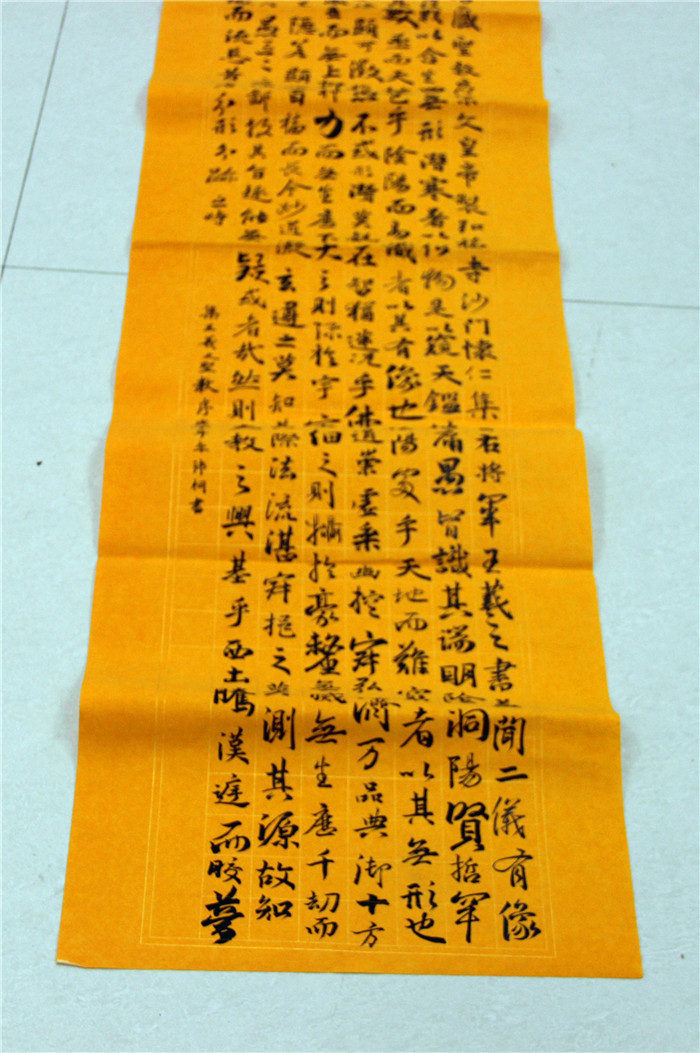 藏聖教宗文皇帝製弘福寺沙門懷仁集右將軍王羲之書盖聞二儀有像
顯以含生無形潛寒暑以化物是以窺天鑑庸愚皆識其端明陰洞陽賢哲罕
數然而天苞乎陰陽而易識者以其有像也陽處乎天地而難窮者以其無形也
顯可徵不惑形潛莫覩在智猶迷況乎佛道崇虛乘幽控寂弘濟万品典御十方
而無上抑力而無下大之則弥於宇細之則攝於豪釐無滅無生歷千劫而
隱若顯百福而長今妙道凝玄遵之莫知際法流湛寂挹之莫測其源故知
愚之鄙投其旨趣能無疑惑者哉然則教之興基乎西土騰漢庭而皎夢
而流慈昔分形分跡之時
集王羲之聖教序書